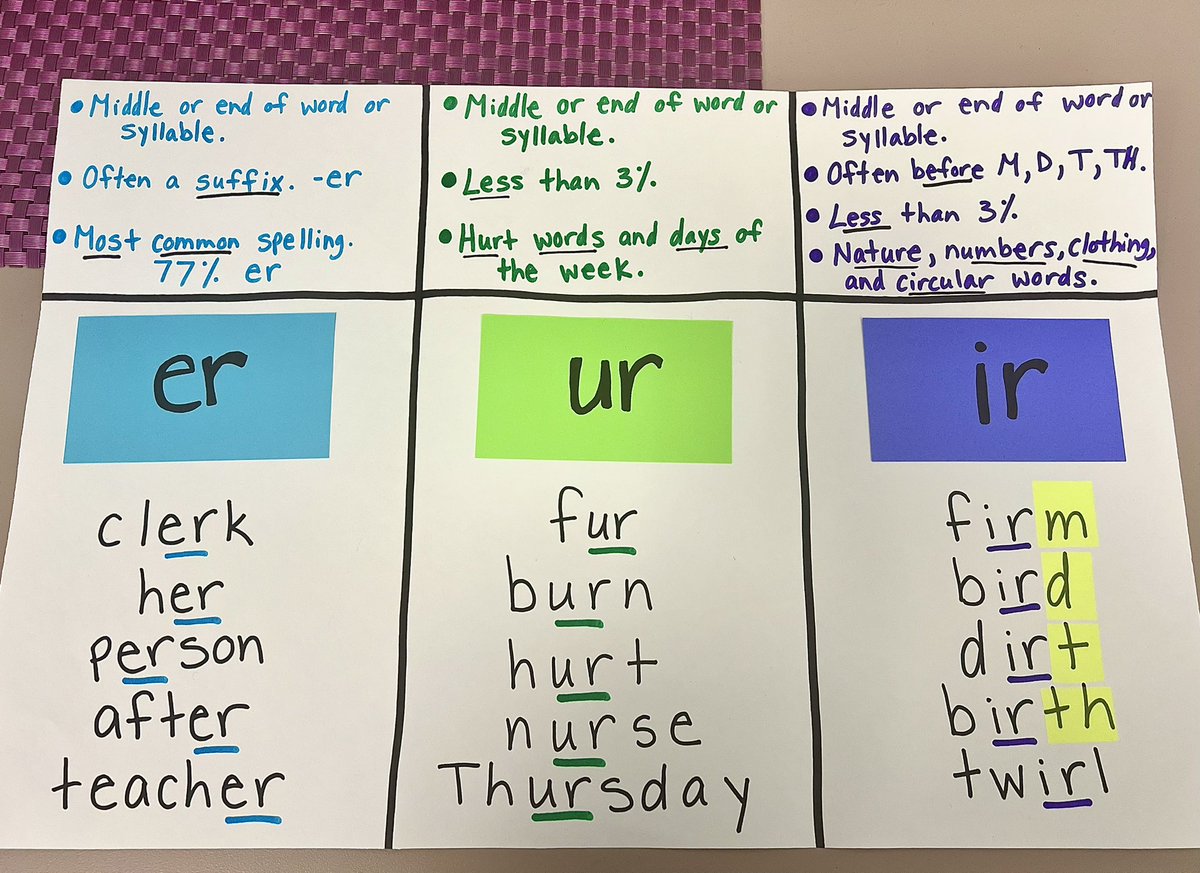 • Middle or end of word or
syllable.
• Often a suffix. -er
• Most common spelling.
77% er
• Middle or end of word or
syllable.
• Less than 3%.
• Hurt words and days of
the week.
• Middle or end of word or
syllable.
• Often before M, D, T, TH.
• Less than 3%.
• Nature, numbers, clothing,
and circular words.
er
clerk
her
person
after
teacher
ur
fur
burn
hurt
nurse
Thursday
ir
firm
bird
dirt
birth
twirl